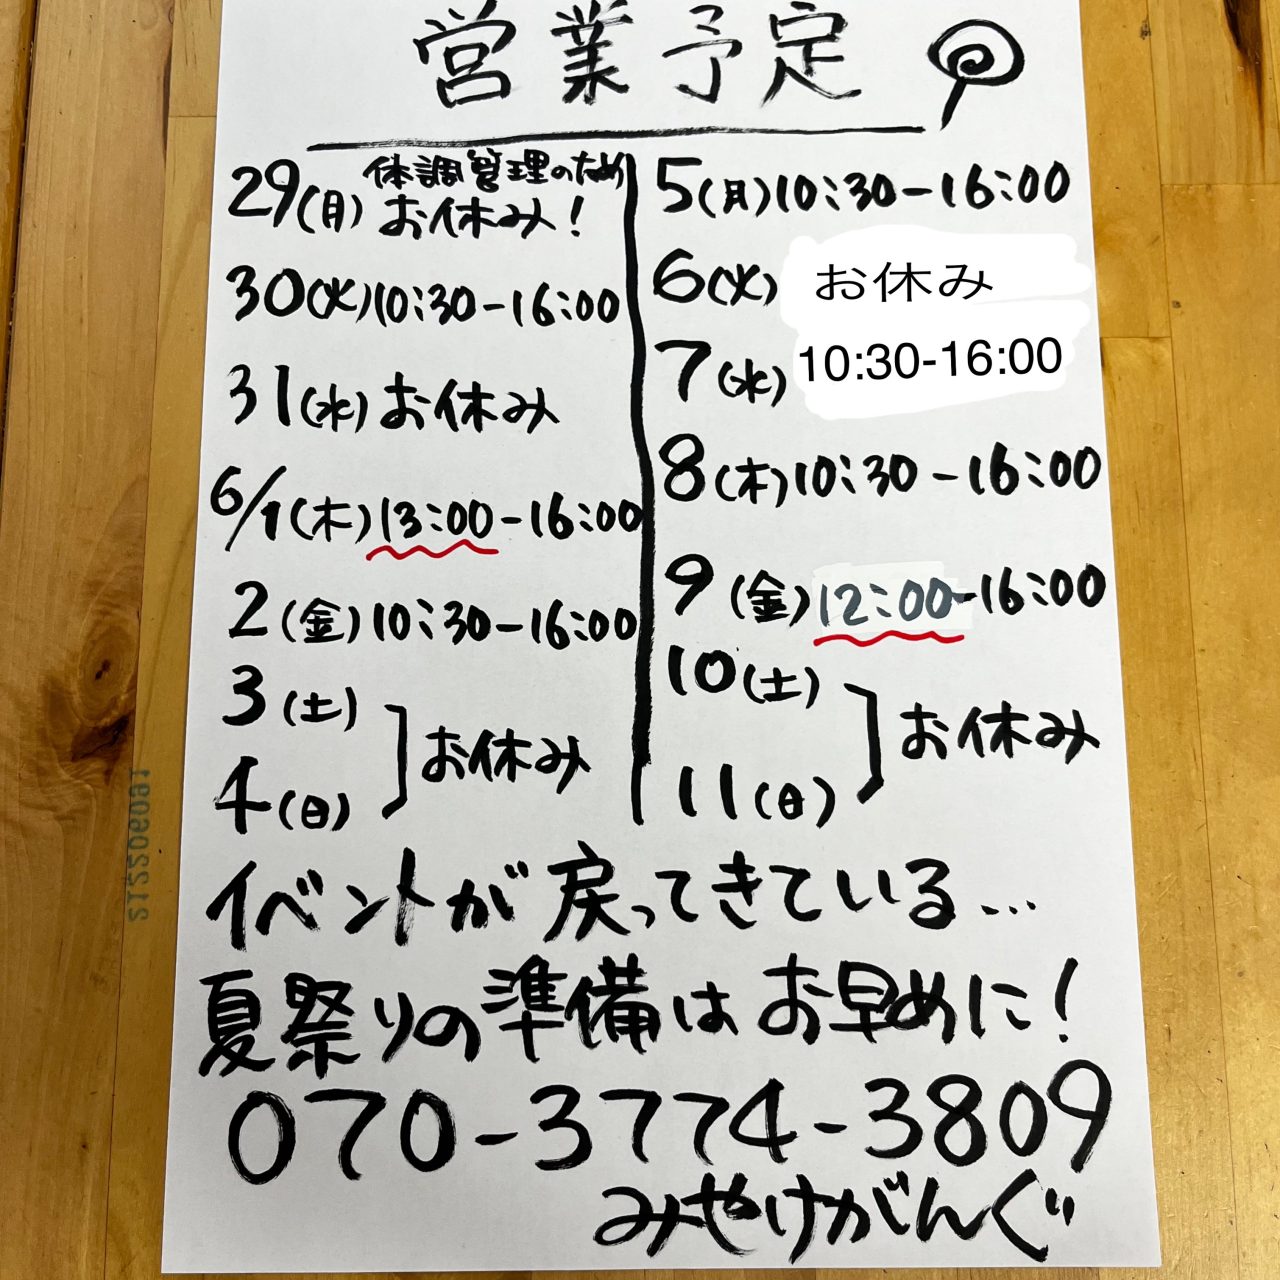 営業予定
29(月) 体調管理のため
お休み!
30(火)10:30-16:00
31(水)お休み
6/1(木)13:00-16:00
2(金)10:30-16:00
3(土)
4(日)
お休み
5(月)10:30-16:00
6(火) お休み
7(水) 10:30-16:00
8(木)10:30-16:00
9(金)12:00-16:00
10(土)
11(日)
お休み
イベントが戻ってきている...
夏祭りの準備はお早めに!
070-3774-3809
みやけがんぐ